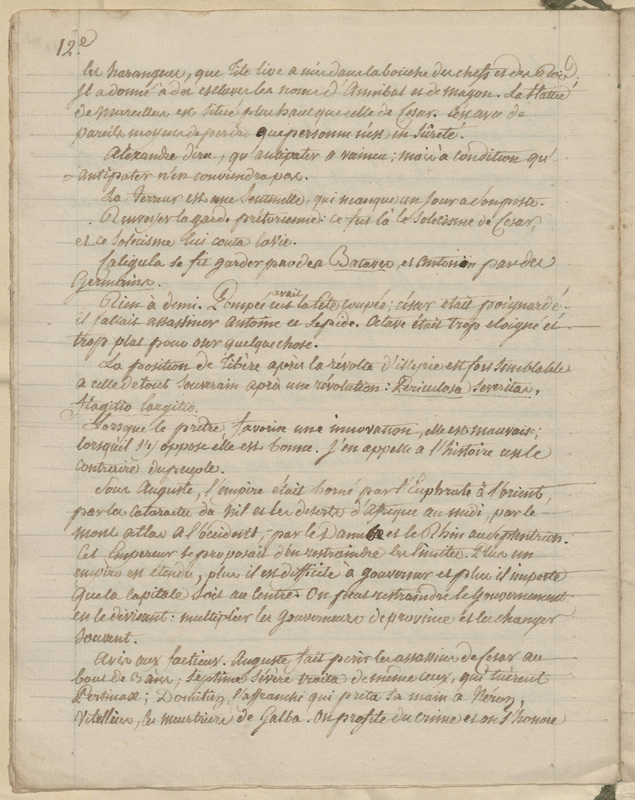 12.e
les harangues, que Tite live a mis dans la bouche des chefs et des Rois;
il a donné à des esclaves les noms d'Annibal et de magon. La statue
de Marcellus est située plus haut que celle de Cesar. Cen'avec de
pareils moyens de perdre que personne n'est en sûreté.
Alexandre dira, qu'antipater a vaincu; mais à condition qu'
antipater n'en conviendra pas.
La Terreur est une Sentinelle, qui manque un jour a son poste.
Renvoyer la garde prétorienne: ce fut là le Solecisme de Cesar,
et ce solécisme lui couta la vie.
Caligula se fit garder par des Bataves, et Antonin par des
Germains.
Rien à demi. Pompée avait eut la tête coupée; césar etait poignardé:
il fallait assassiner Antoine et Lepide. Octave était trop eloigné et
trop plat pour oser quelque chose.
La position de Tibère après la révolte d'illyrie est fort semblable
a celle de tout Souverain après une révolution: Periculosa Severitas,
flagitio largitio.
Lorsque le prêtre favorise une innovation, elle est mauvaise;
lorsqu'il s'y oppose elle est bonne. J'en appelle a l'histoire c'est le
contraire du peuple.
Sous Auguste, l'empire était borné par l'Euphrate à l'orient,
par les cataractes du nil et les deserts d'afrique au midi, par le
mont atlas a l'occident, par le Danube et le Rhin au septentrion.
Cet Empereur se proposait d'en restraindre les limites. Plus un
empire est étendu, plus il est difficile à gouverner et plus il importe
que la capitale soit au centre. On peut restraindre le Gouvernement
en le divisant: multiplier les Gouverneurs de province et les changer
souvent.
Avis aux factieux. Auguste fait perir les assassins de Cesar au
bout de 3 ans; Septime Sévère traita de même ceux, qui tuèrent
Pertinax; Domitien, l'affranchi qui preta sa main à Néron;
Vitellius, les meurtriers de Galba. On profite du crime et on s'honore